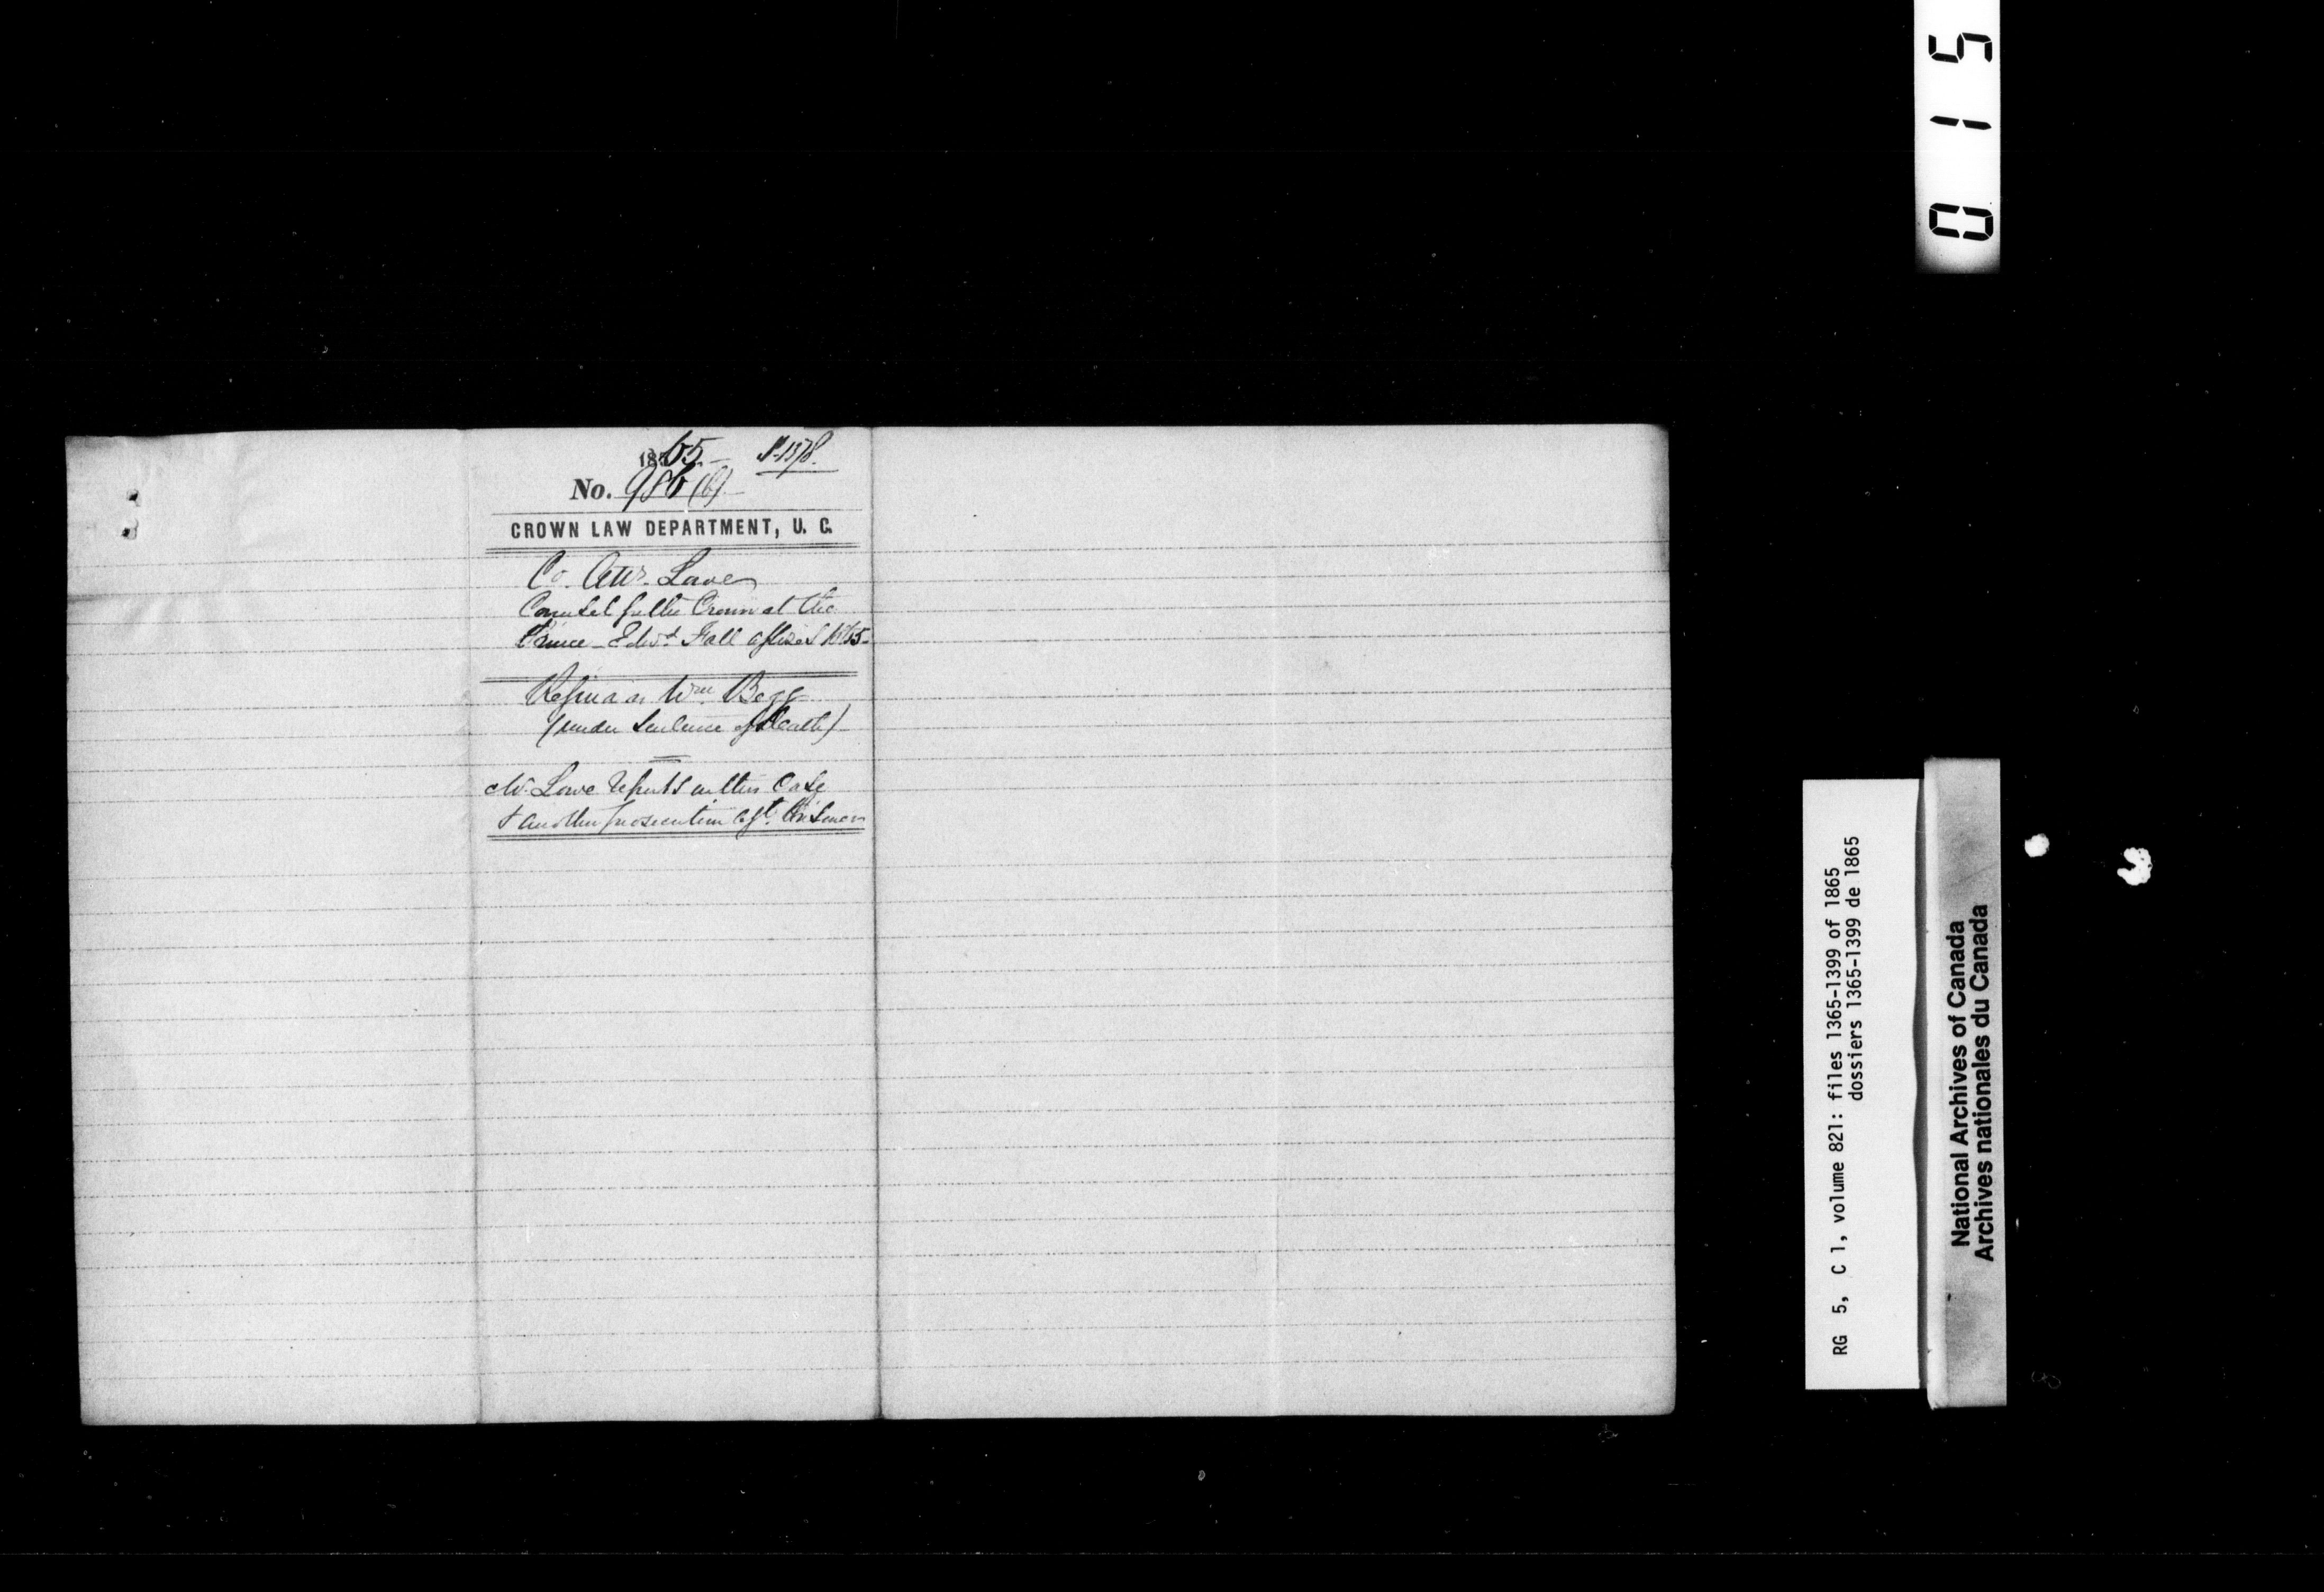 1865 – P-1378.
No. 986 (6)
CROWN LAW DEPARTMENT, U. C.
Co. Atty. Lowe
Counsel for the Crown at the
Prince – Edwd Fall Assizes 1865 –
Regina vs Wm. Begg
(under Sentence of Death)
Mr. Lowe reports on this Case
& another prosecution agst. Prisoner
015
RG 5, C 1, volume 821: files 1365-1399 of 1865
dossiers 1365-1399 de 1865
National Archives of Canada
Archives nationales du Canada